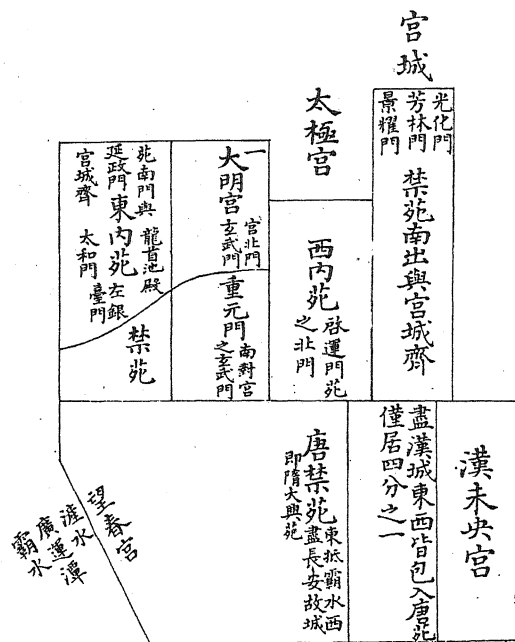 宮城
光化門
芳林門
景耀門
禁苑南出與宮城齊
太極宮
西內苑
啓運門苑
之北門
一
大明宮
宮北門
玄武門
重元門
南對宮
之玄武門
苑南門與
延政門
宮城齊
東內苑
龍首池殿
左銀
臺門
太和門
禁苑
漢未央宮
盡漢城東西皆包入唐苑
僅居四分之一
唐禁苑
東抵霸水西
盡長安故城
即隋大興苑
望春宮
滻水
廣運潭
霸水